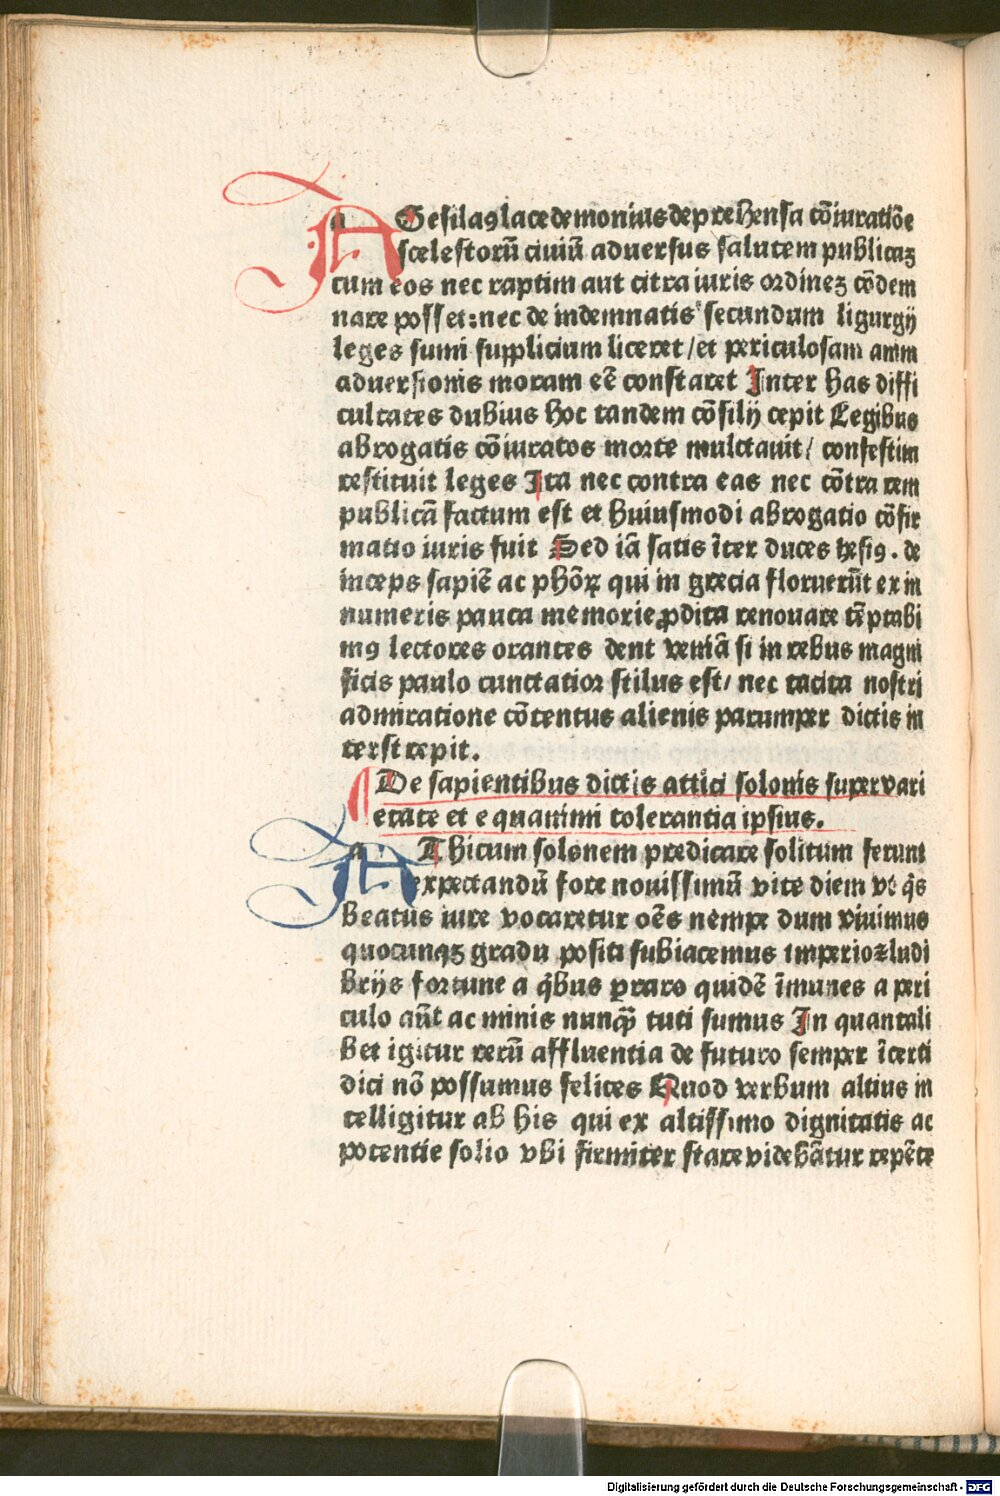 AGesilaꝰ lacedemonius deprehensa cōiuratiōe
scelestorū ciuiū aduersus salutem publicaꝫ
cum eos nec raptim aut citra iuris ordineꝫ cōdem
nare posset: nec de indemnatis secundum ligurgij
leges sumi supplicium liceret / et periculosam anim
aduersionis moram eē constaret Inter has diffi
cultates dubius hoc tandem cōsilij cepit Legibus
abrogatis cōiuratos morte mulctauit / confestim
restituit leges Ita nec contra eas nec cōtra rem
publicā factum est et huiusmodi abrogatio cōfir
matio iuris fuit Sed iā satis īter duces hesiꝰ. de
inceps sapiē ac phōꝝ qui in grecia floruerūt ex in
numeris pauca memorie ꝓdita renouare tēptabi
mꝰ lectores orantes dent veniā si in rebus magni
ficis paulo cunctatior stilus est / nec tacita nostri
admiratione cōtentus alienis parumper dictis in
terstrepit.
De sapientibus dictis attici solonis super vari
etate et equanimi tolerantia ipsius.
AThicum solonem predicare solitum ferunt
expectandū fore nouissimū vite diem vt q̄s
beatus iure vocaretur oēs nempe dum viuimus
quocunqꝫ gradu positi subiacemus imperio ⁊ ludi
brijs fortune a q̄bus ꝑraro quidē īmunes a peri
culo aūt ac minis nunqꝫ̄ tuti sumus In quantali
bet igitur rerū affluentia de futuro semper īcerti
dici nō possumus felices Quod verbum altius in
telligitur ab his qui ex altissimo dignitatis ac
potentie solio vbi firmiter stare videbātur repēte
Digitalisierung gefördert durch die Deutsche Forschungsgemeinschaft - DFG